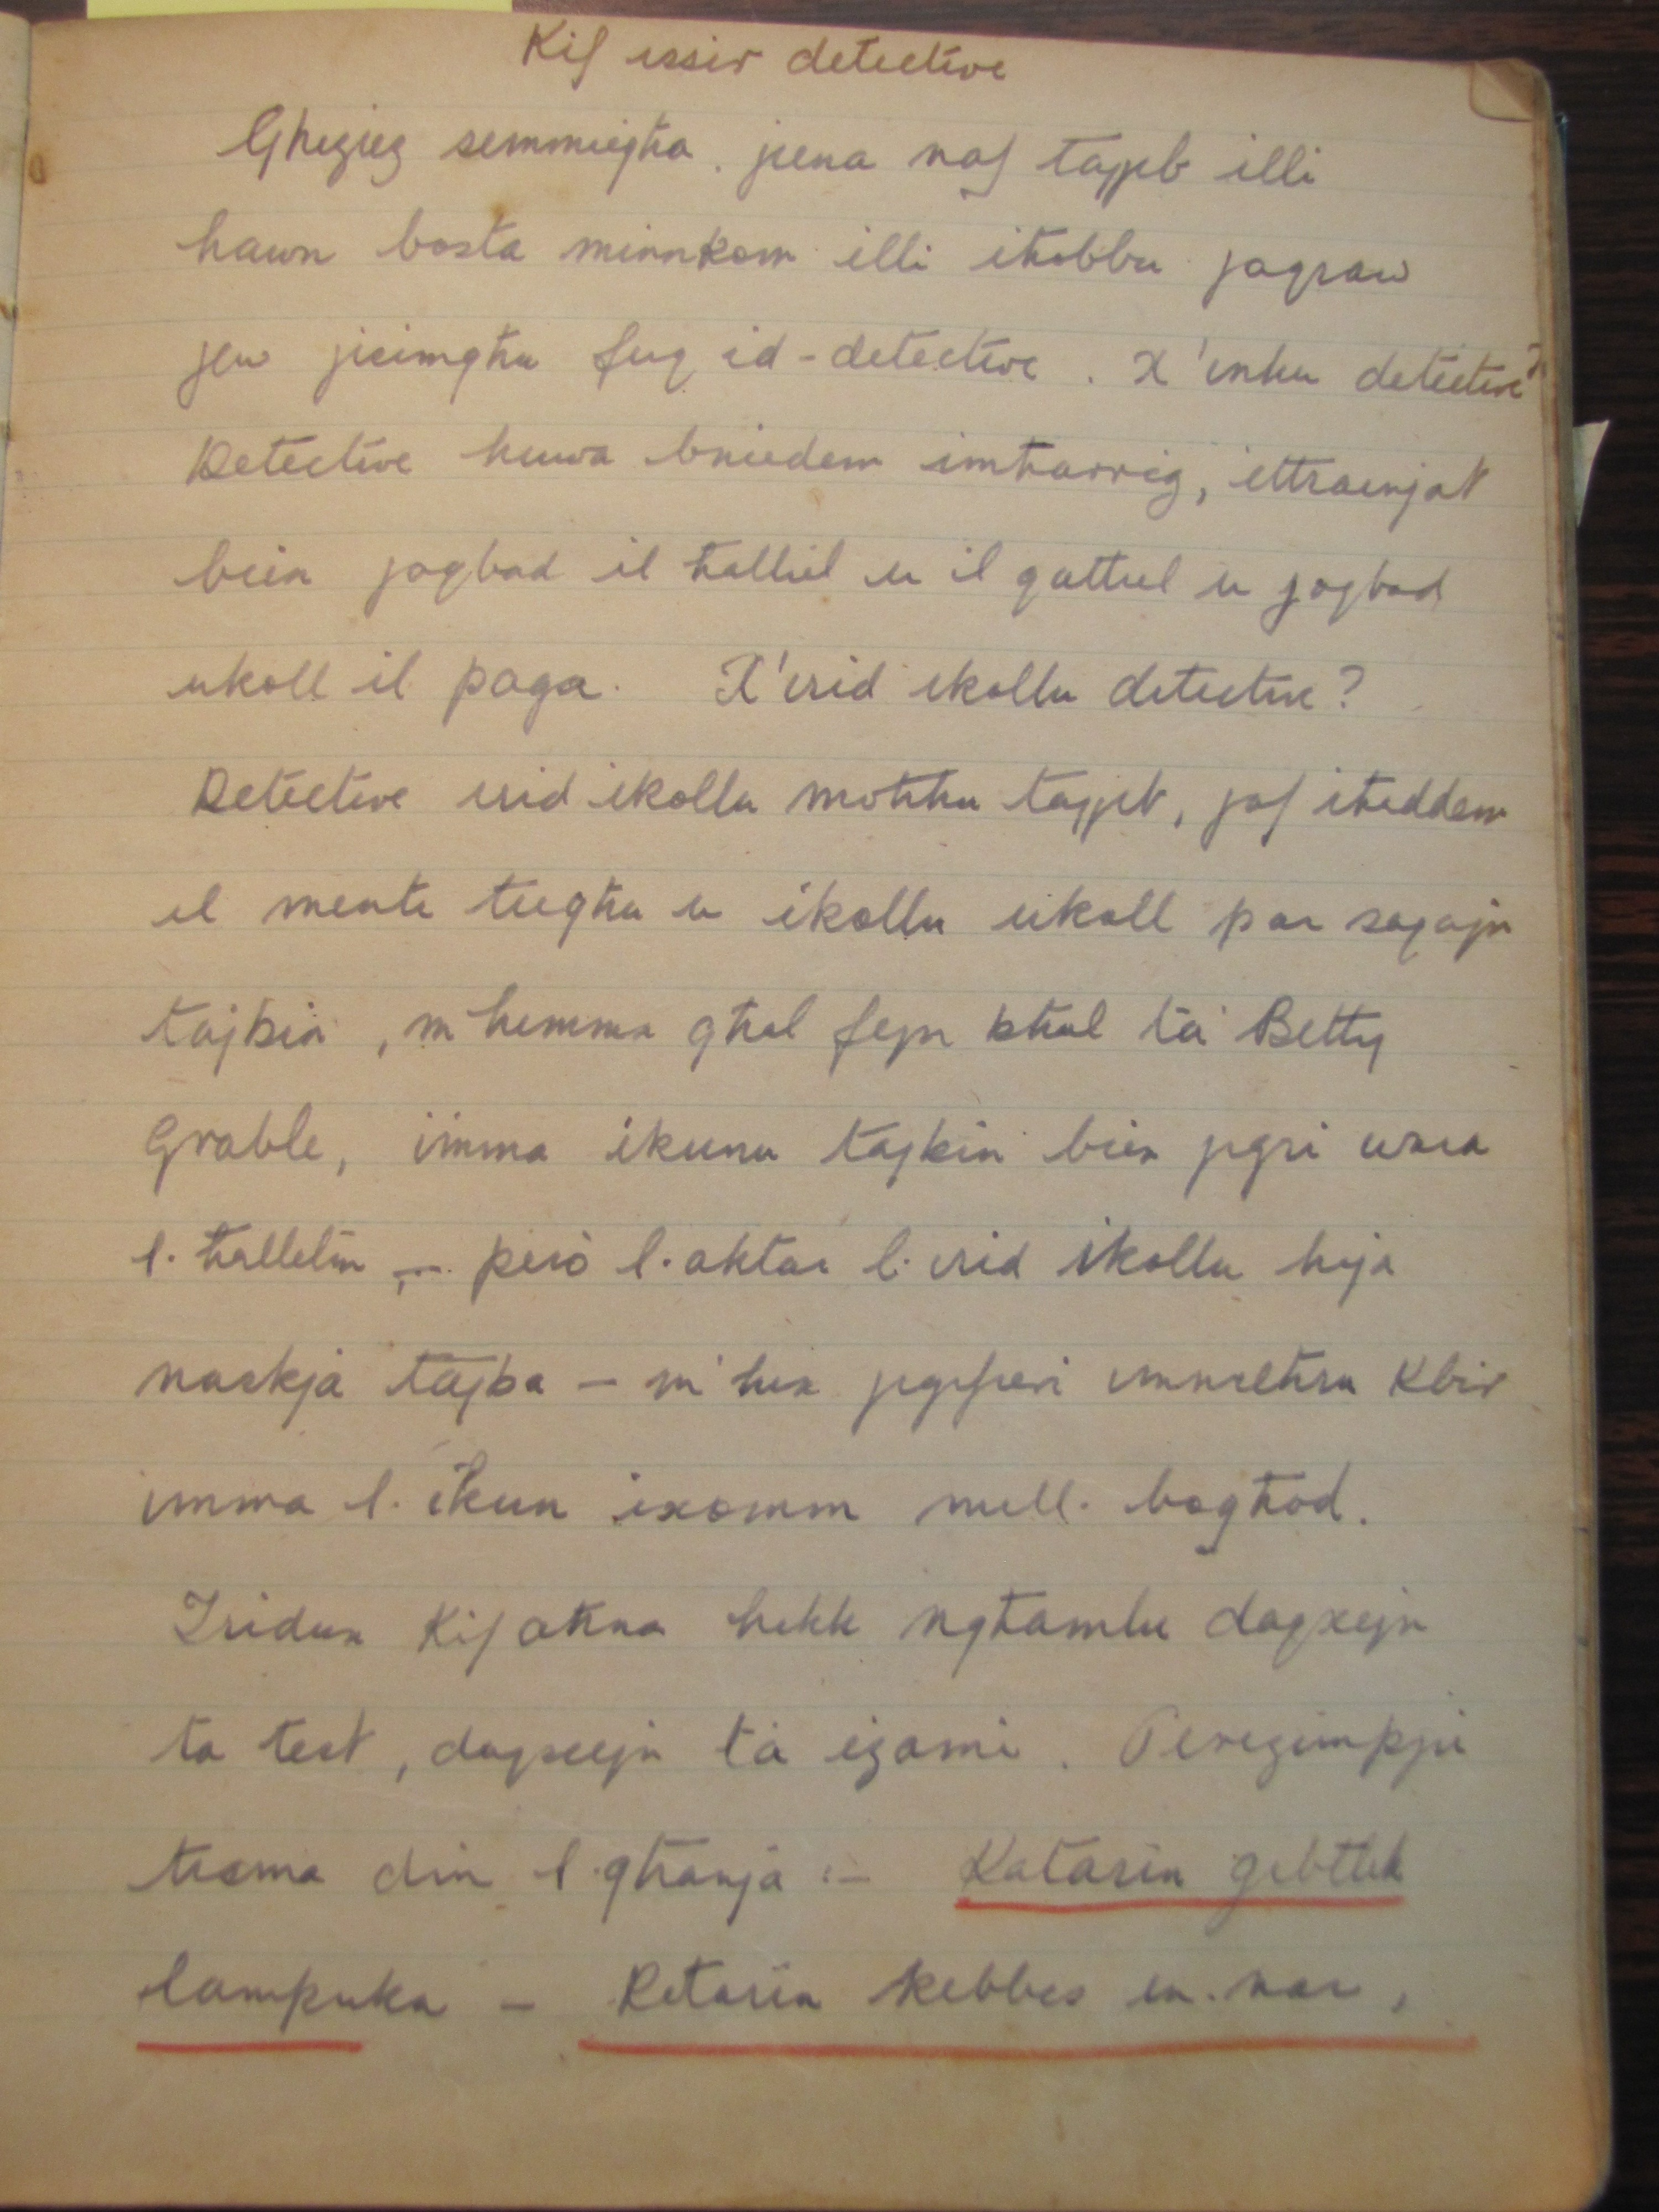 Kif issir detective
Għeżież semmiegħa. jiena naf tajjeb illi
hawn bosta minnkom illi iħobbu jaqraw
jew jisimgħu fuq id-detective. X'inhu detective?
Detective huwa bniedem imħarreġ, ittraenjat
biex jaqbad il ħalliel u il qattiel u jaqbad
ukoll il paga. X'irid ikollu detective?
Detective irid ikollu moħħu tajjeb, jaf iħaddem
il menti tiegħu u ikollu ukoll par saqajn
tajbin, m hemmx għal fejn bħal ta' Betty
Grable, imma ikunu tajbin biex jiġri wara
l. ħallelin, - però l. aktar l. irid ikollu hija
maskja tajba - m' hix jiġifieri immneħru kbir
imma l. ikun ixomm mill. bogħod.
Iridux kif aħna hekk ngħamlu daqxejn
ta test, daqxejn ta' eżami. Per eżempju
tisma din l. għanja :- Katarin ġibtlek
lampuka - Katarin kebbes in. nar,